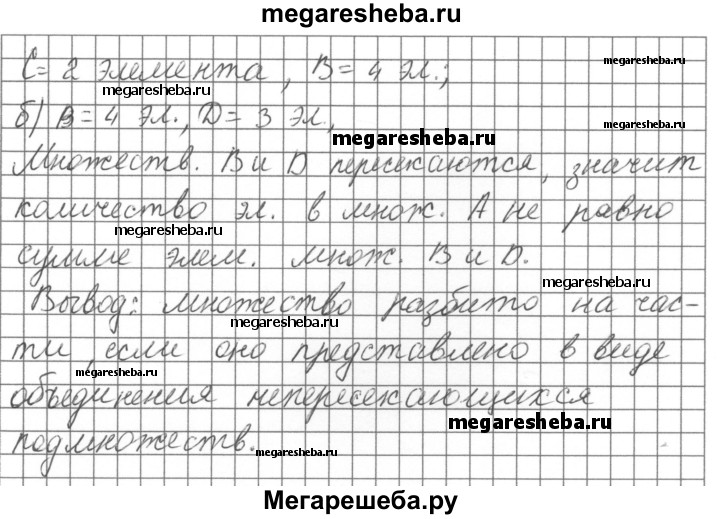 megaresheba.ru
C = 2 элемента, B = 4 эл.;
megaresheba.ru
megaresheba.ru
б) B = 4 эл., D = 3 эл,
megaresheba.ru
megaresheba.ru
Множеств. B и D пересекаются, значит
количество эл. в множ. A не равно
megaresheba.ru
сумме элем. множ. B и D.
megaresheba.ru
Вывод: множество разбито на час-
megaresheba.ru
ти, если оно представлено в виде
megaresheba.ru
объединения непересекающихся
megaresheba.ru
подмножеств.
megaresheba.ru
Мегарешеба.ру